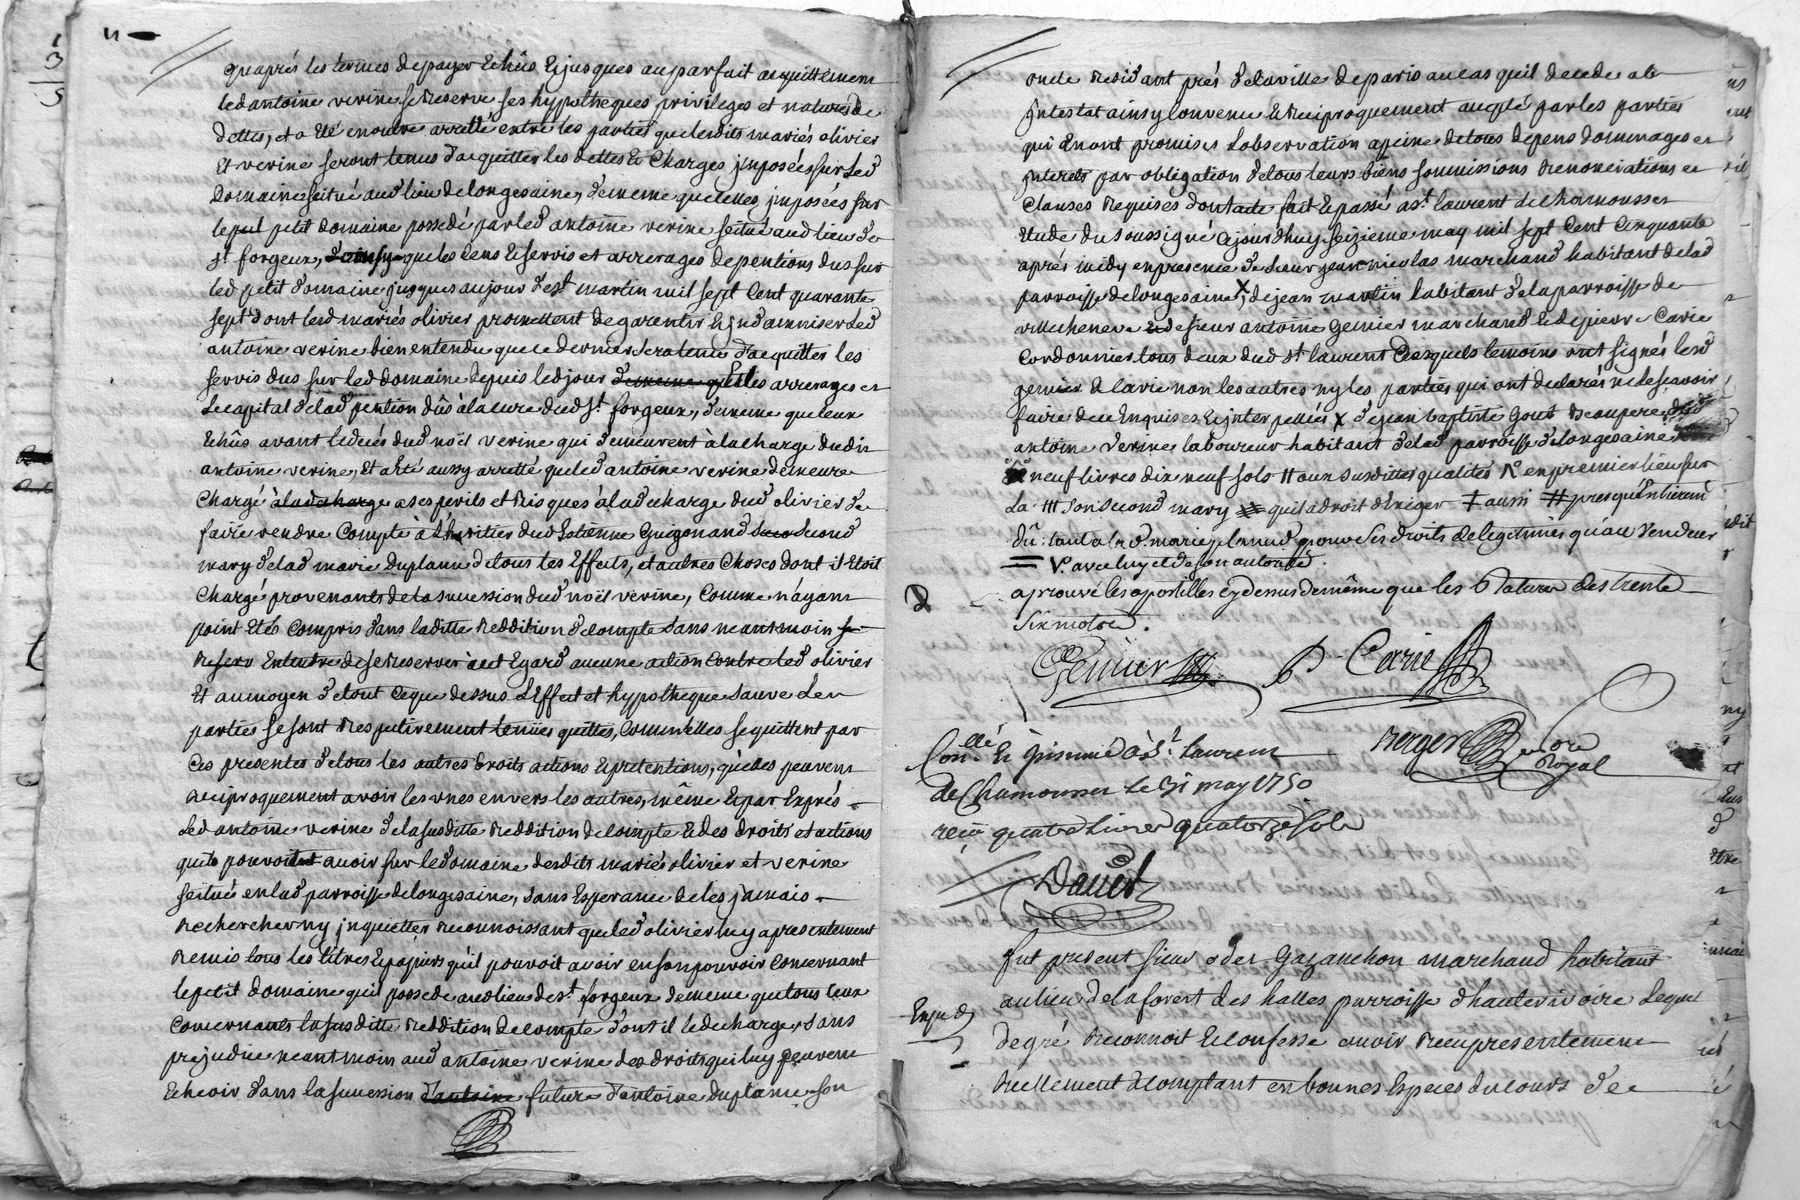 qu'aprés les termes de payer Echûs Et jusques au parfait acquittement
led antoine verine se Reserve ses hypotheques privileges et natures de
dettes, et a Eté en outre arretté entre les parties que lesdits mariés olivier
Et verine seront tenus d'acquitter les dettes Et Charges jmposées sur Led
Domaine scitué aud lieu de longesaine, de meme que celles jmposées sur
le petit domaine possedé par led antoine verine scitué aud lieu de
st forgeux, que les Cens Et servis et arrerages de pentions dus sur
led petit domaine jusques au jour de st martin mil sept Cent quarante
sept dont lesd mariés olivier promettent de garentir Et jndamniser Led
antoine verine bien entendu que ce dernier sera tenu d'acquitter les
servis dus sur led domaine depuis led jour de meme que les arrerages et
Le capital de lad pention dûs à la cure dud St forgeux, de meme que ceux
Echûs avant le deces dud noël verine qui demeurent à la charge dudit
antoine verine, Et a Eté aussy arretté que led antoine verine demeure
Chargé à la decharge a ses perils et Risques à la decharge dud olivier de
faire rendre Compte à L'heritier dud Estienne Guigonand second
mary de lad marie duplanu de tous les Effects, et autres Choses dont il Etoit
Chargé provenants de la succession dud noël verine, Comme n'ayant
point Etés Compris dans laditte Reddition de Compte sans neantmoin se
Reserv Entendre de se Reserver à cet Egard aucune action Contre led olivier
Et au moyen de tout Ce que dessus L'Effect et hypotheque sauve Les
parties se sont Respectivement tenües quittes, Comme Elles se quittent par
Ces presentes de tous les autres droits actions Et pretentions, qu'elles peuvent
Reciproquement avoir les unes envers les autres, même Et par Exprés
Led antoine verine de la susditte Reddition de Compte Et des droits et actions
qu'il pouvoit avoir sur le domaine desdits mariés olivier et verine
scitué en lad parroisse de longesaine, sans Esperance de les jamais
Rechercher ny jnquietter Reconnoissant que led olivier luy a presentement
Remis tous les titres Et papiers qu'il pouvoit avoir en son pouvoir Concernant
le petit domaine qu'il possede aud lieu de st forgeux de meme que tous Ceux
Concernants la susditte Reddition de Compte dont il le decharge, sans
prejudice neantmoin aud antoine verine des droits qui luy peuvent
Echeoir dans la succession d'antoine future d'antoine duplanu son
oncle Residant prés de la ville de paris au cas qu'il decede ab
jntestat ainsy Convenu Et Reciproquement accepté par les parties
qui En ont promis L'observation a peine de tous depens dommages et
jnterets par obligation de tous leurs biens soumissions Renonciations et
Clauses Requises dont acte fait Et passé a st laurent de Chamousset
Etude du soussigné Ce jourd'huy seizieme may mil sept Cent Cinquante
aprés midy en presence de sieur jean nicolas marchand habitant de lad
parroisse de longesaine, de jean martin habitant de la parroisse de
villecheneve de sieur antoine Genier marchand Et de pierre Carie
Cordonnier tous deux dud st laurent Desquels temoins ont signés lesd
genier Et Carie non les autres ny les parties qui ont declarés ne le scavoir
faire de ce Enquises Et jnterpellées X de jean baptiste Gout
antoine verine laboureur habitant de lad parroisse de longesaine
neuf livres dix neuf sols # aux susdittes qualités en premier lieu sur
La son second mary qu'il a droit d'Exiger + aussi # presqu'Entierem
dû: tant a la d. marie planud pour ses droits de legitimes qu'au vendeur
= V. avec luy et de son autorité.
aprouvé les apostilles cy dessus de même que les Ratures des trente
six mots.
Genier P. Carie
Berger notre Royal
Conllé Et insinué à St Laurent
de Chamousset le 31 may 1750
reçu quatre Livres quatorze sols
Dauiet
fut present sieur oder Gazanchon marchand habitant
au lieu de la forest des halles parroisse d'hauterivoire Lequel
de gré Reconnoit Et Confesse avoir Receu presentement
Reellement Comptant en bonnes Especes du Cours de
Expedé